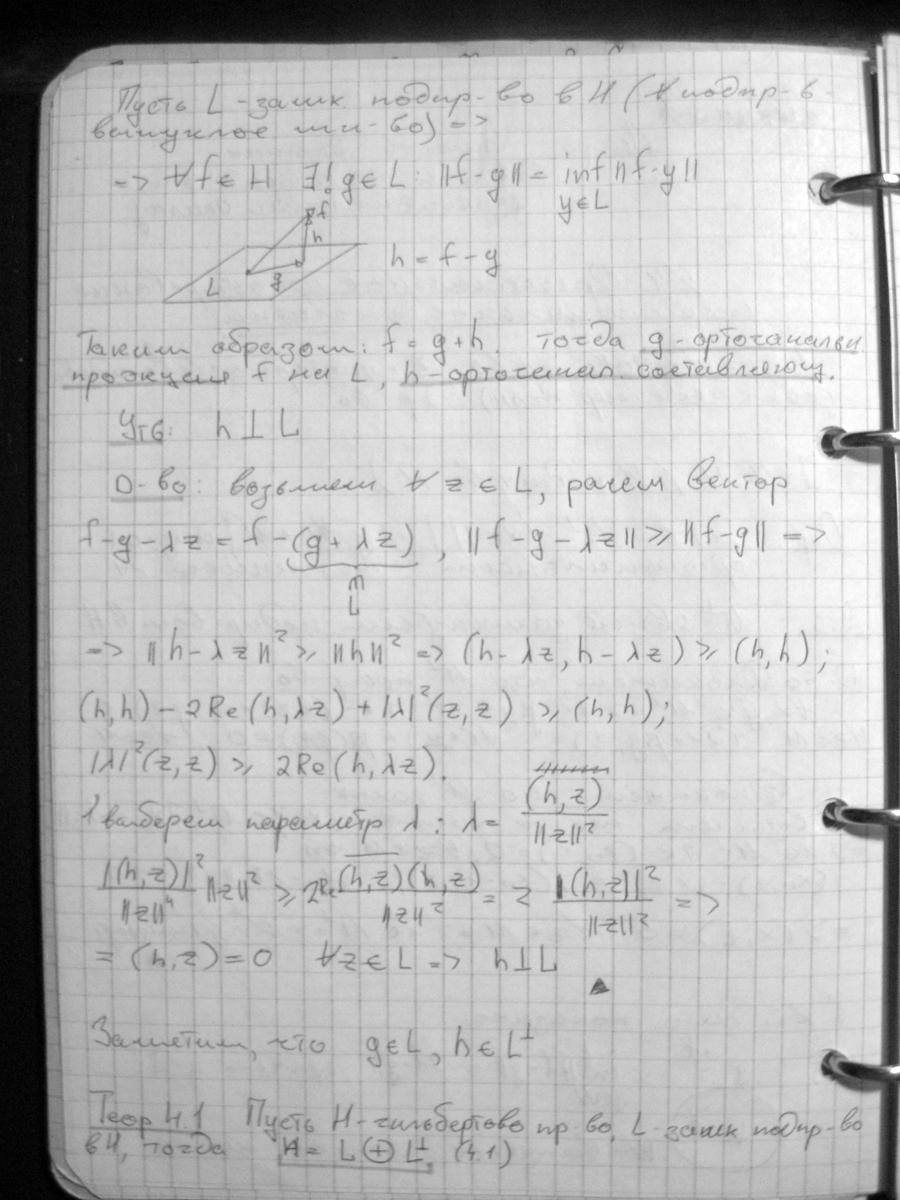 Пусть L - замк подпр-во в H (∀ подпр-в -
выпуклое мн-во) =>
=> ∀f ∈ H ∃! g ∈ L: ||f-g|| = inf ||f-y||
y∈L
f
h
g
L
h = f - g
Таким образом: f = g+h. Тогда g - ортогональн
проекция f на L, h - ортогонал. составляющ.
Утв: h ⊥ L
D-во: возьмем ∀ z ∈ L, рассм вектор
f-g-λz = f-(g+λz), ||f-g-λz|| ≥ ||f-g|| =>
∈
L
=> ||h-λz||² ≥ ||h||² => (h-λz, h-λz) ≥ (h,h);
(h,h) - 2Re(h,λz) + |λ|²(z,z) ≥ (h,h);
|λ|²(z,z) ≥ 2Re(h,λz).
выберем параметр λ: λ = (h,z)/||z||²
|(h,z)|²/||z||⁴ ||z||² ≥ 2Re \overline{(h,z)}(h,z)/||z||² = 2 |(h,z)|²/||z||² =>
= (h,z) = 0 ∀z∈L => h⊥L
▲
Заметим, что g∈L, h∈L^⊥
Теор 4.1 Пусть H - гильбертово пр-во, L - замк подпр-во
в H, тогда H = L ⊕ L^⊥, (4.1)